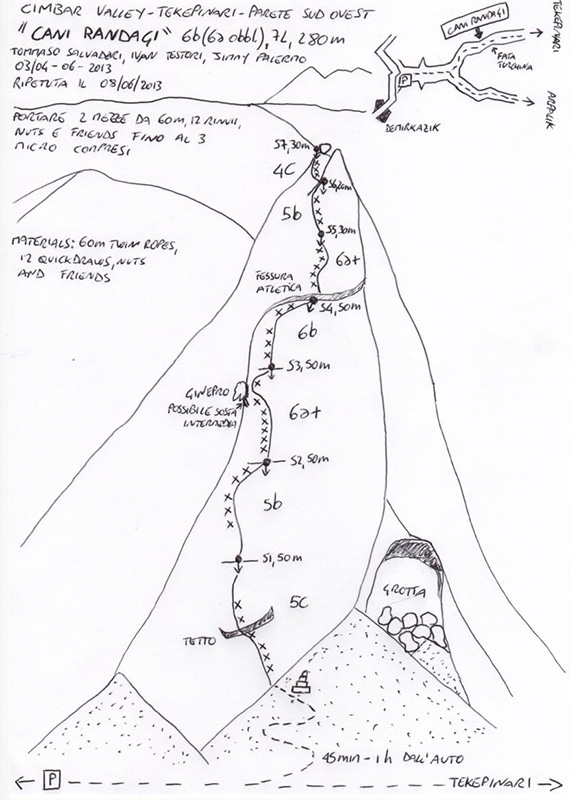 CIMBAR VALLEY-TEKEPINARI-PARETE SUD OVEST
"CANI RANDAGI" 6b(6a obbl), 7L, 280m
TOMMASO SALVADORI, IVAN TESTORI, JIMMY PALERMO
03/04-06-2013
RIPETUTA IL 08/06/2013
PORTARE 2 MEZZE DA 60m, 12 RINVII,
NUTS E FRIENDS FINO AL 3
MICRO COMPRESI
MATERIALS: 60m TWIN ROPES,
12 QUICKDRAWS, NUTS
AND FRIENDS
CANI RANDAGI
TEKEPINARI
FATA
TURCHINA
P
DEMIRKAZIK
ARPALIK
S7, 30m
4C
S6, 20m
5b
S5, 30m
6a+
FESSURA
ATLETICA
S4, 50m
6b
S3, 50m
GINEPRO
POSSIBILE SOSTA
INTERMEDIA
6a+
S2, 50m
5b
S1, 50m
5C
TETTO
GROTTA
45min - 1h DALL'AUTO
P
TEKEPINARI